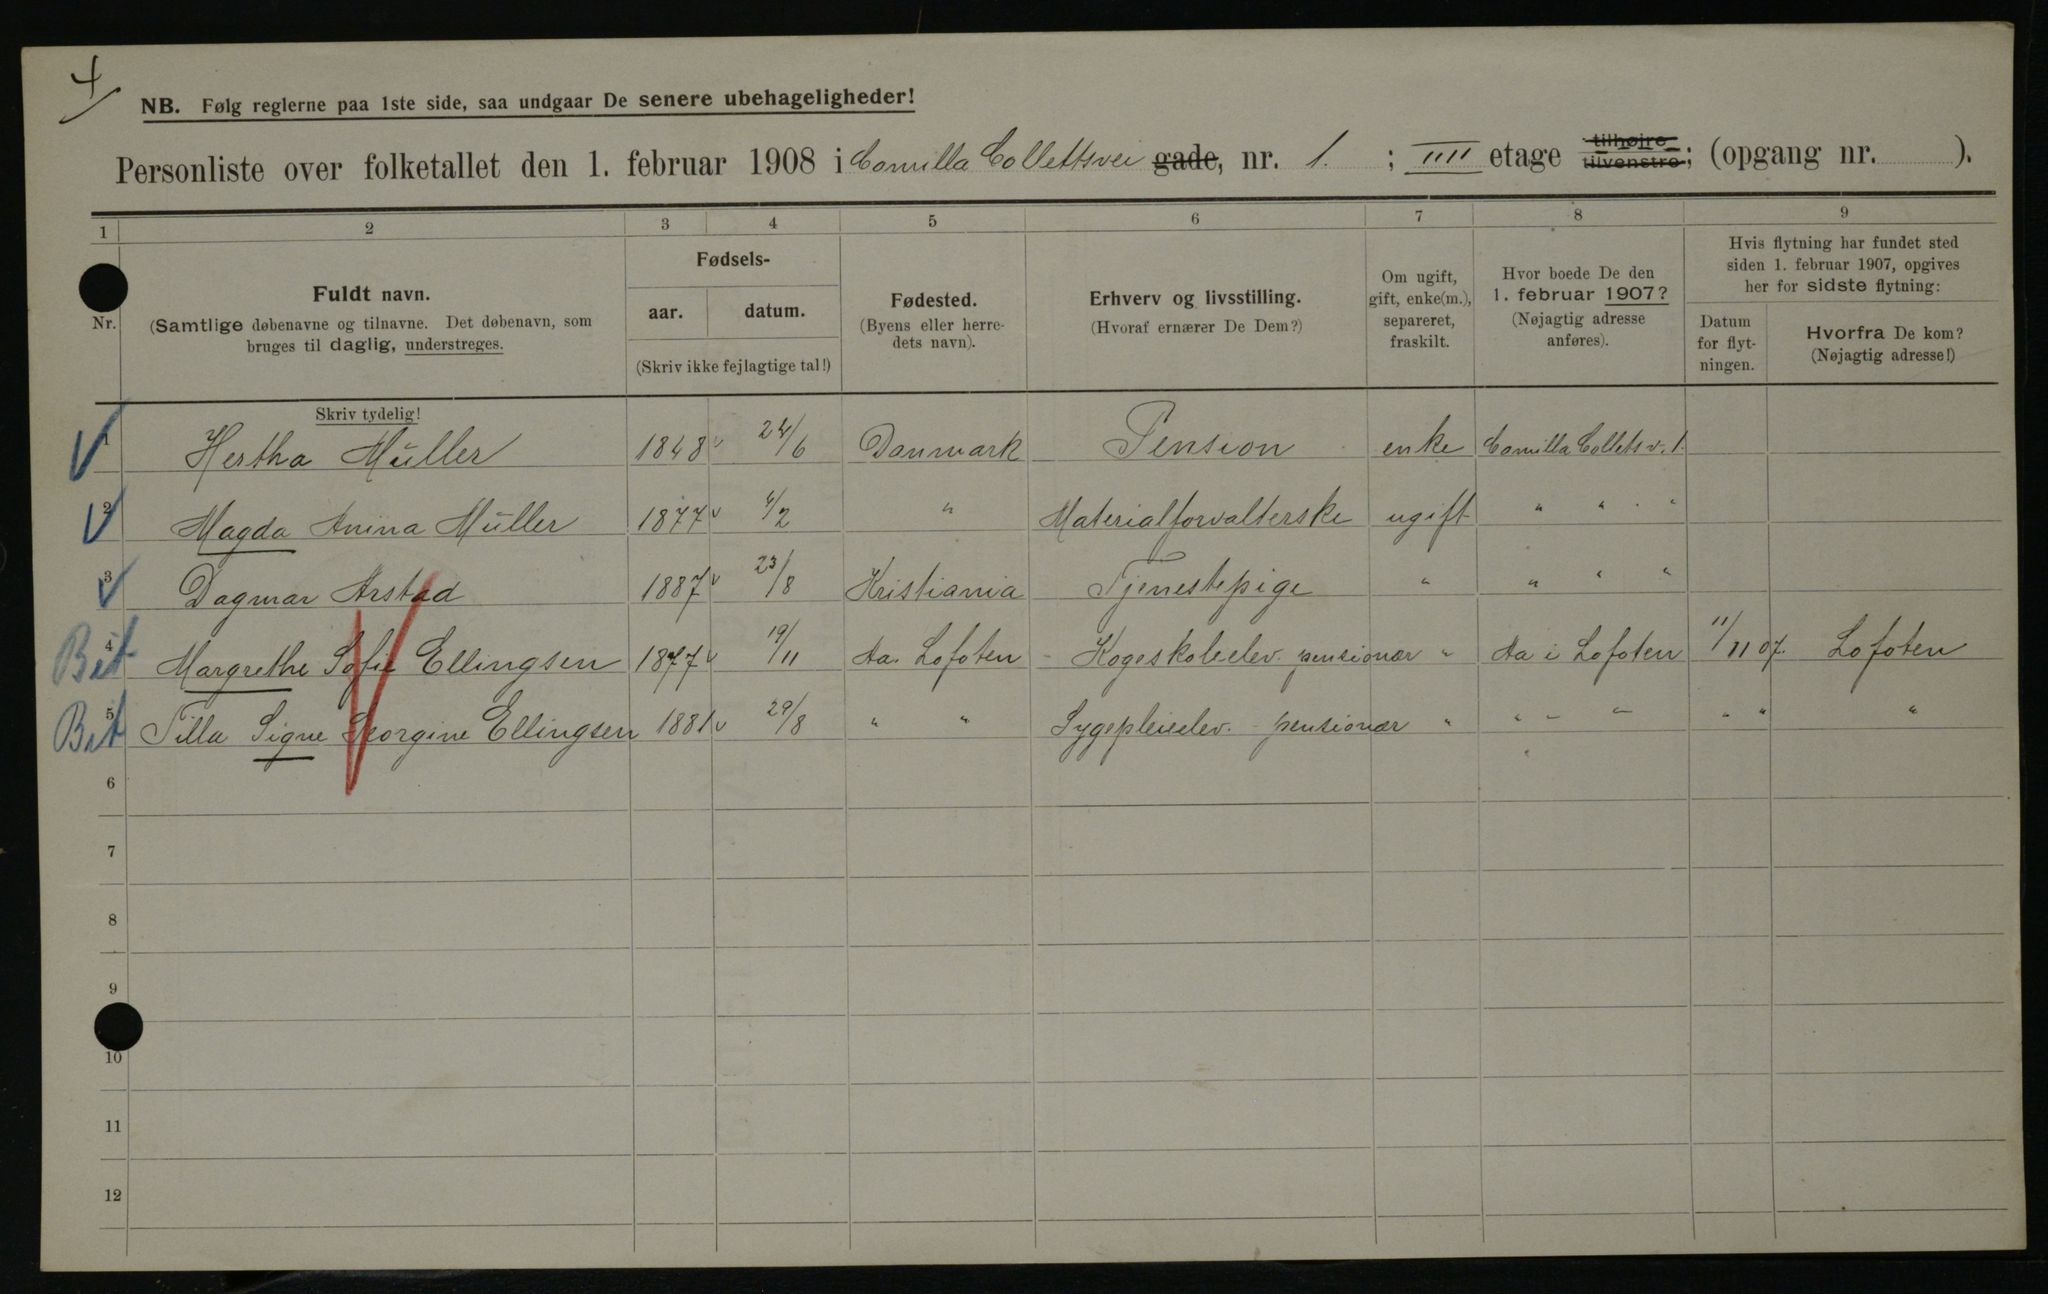 4
NB. Følg reglerne paa 1ste side, saa undgaar De senere ubehageligheder!
Personliste over folketallet den 1. februar 1908 i Camilla Collettsvei gade, nr. 1. ; IIII etage tilhøjre tilvenstre; (opgang nr. ).
1 2 3 4 5 6 7 8 9
Nr.
Fuldt navn.
(Samtlige døbenavne og tilnavne. Det døbenavn, som
bruges til daglig, understreges.
Skriv tydelig!
Fødsels-
aar. datum.
(Skriv ikke fejlagtige tal!)
Fødested.
(Byens eller herre-
dets navn).
Erhverv og livsstilling.
(Hvoraf ernærer De Dem?)
Om ugift,
gift, enke(m.),
separeret,
fraskilt.
Hvor boede De den
1. februar 1907?
(Nøjagtig adresse
anføres).
Hvis flytning har fundet sted
siden 1. februar 1907, opgives
her for sidste flytning:
Datum
for flyt-
ningen.
Hvorfra De kom?
(Nøjagtig adresse!)
1 Hertha Müller 1848 24/6 Danmark Pension enke Camilla Colletsv. 1.
2 Magda Anina Müller 1877 4/2 " Materialforvalterske ugift " " "
3 Dagmar Arstad 1887 23/8 Kristiania Tjenestepige " " " "
Bet 4 Margrethe Sofie Ellingsen 1877 19/11 Aa. Lofoten Kogeskoleelev. pensionær " Aa i Lofoten 11/11 07. Lofoten
Bet 5 Tilla Signe Georgine Ellingsen 1881 29/8 " " Sygepleieelev. - pensionær " " - " " " "
6
7
8
9
10
11
12